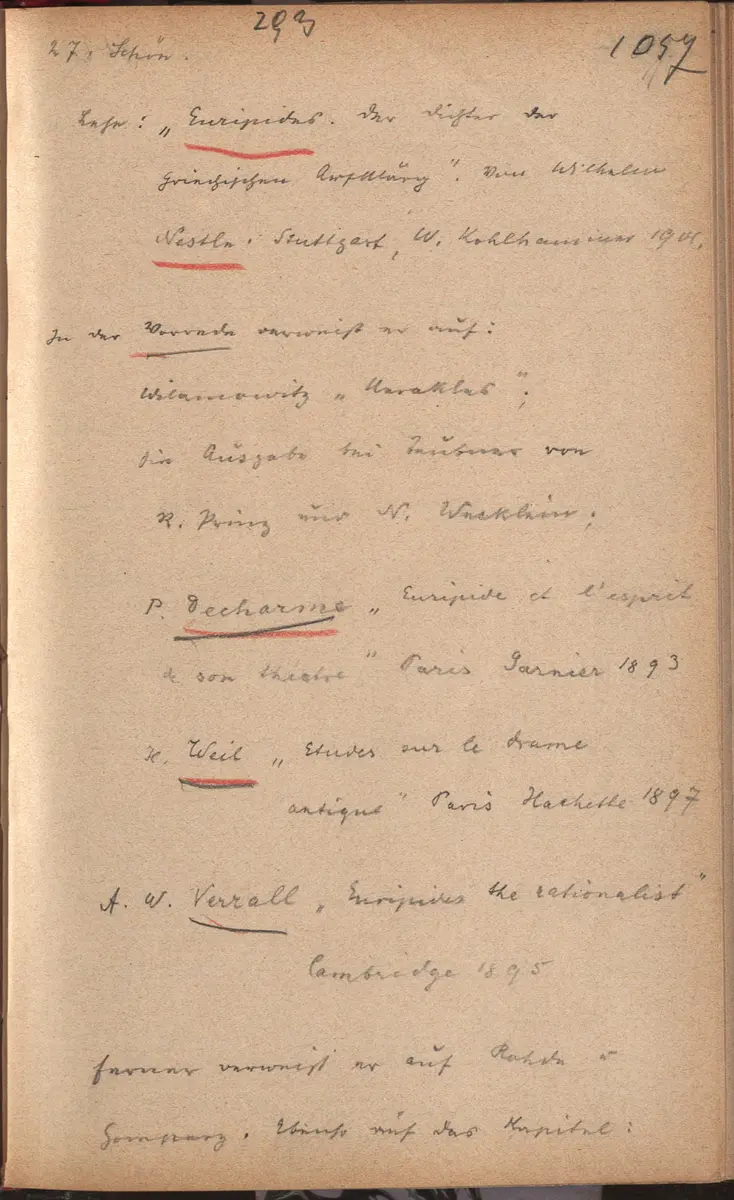 293
27, Schön.
1057
Lese: „Euripides. Der Dichter der
griechischen Aufklärg". Von Wilhelm
Nestle. Stuttgart, W. Kohlhammer 1901.
In der Vorrede verweist er auf:
Wilamowitz „Herakles";
die Ausgabe bei Teubner von
R. Prinz und N. Wecklein;
P. Decharme „Euripide et l'esprit
de son théatre" Paris Garnier 1893
H. Weil „Etudes sur le drame
antique" Paris Hachette 1897
A. W. Verrall „Euripides the rationalist"
Cambridge 1895
ferner verweist er auf Rohde u
Gomperz. Ebenso auf das Kapitel: